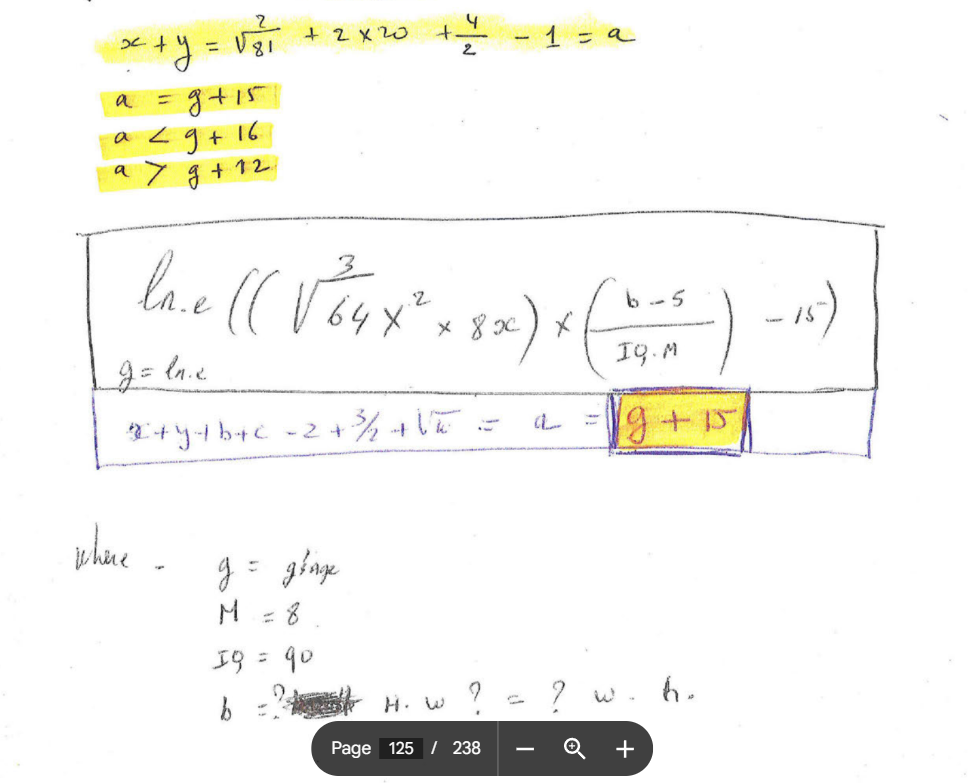 x + y = √81 2 + 2 × 20 + 4/2 - 1 = a
a = g + 15
a < g + 16
a > g + 12
ln.e ((√64x² 3 × 8x) × (b - 5 / IQ.M) - 15)
g = ln.e
x + y + b + c - 2 + 3/2 + √π = a = g + 15
where -
g =
M = 8
IQ = 90
b = ? H. w ? = ? w. h.
Page 125 / 238